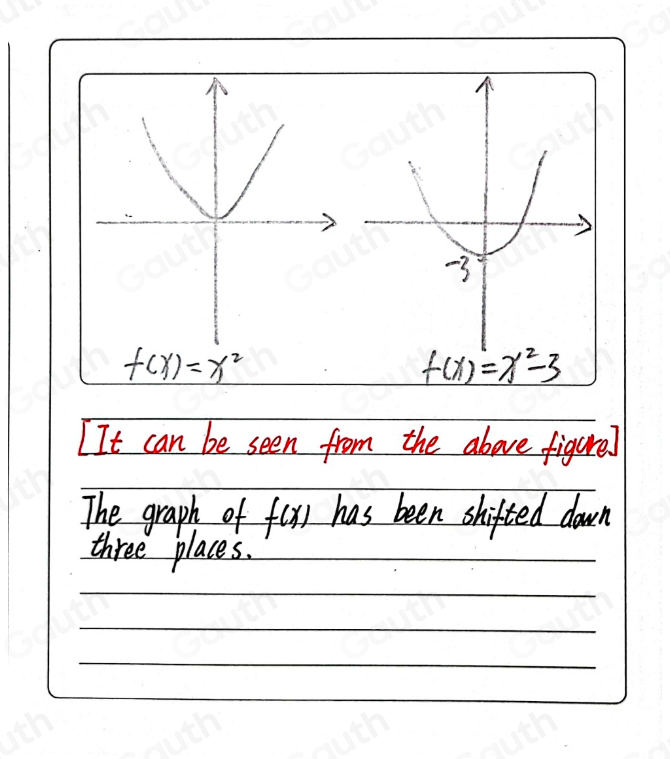 -3
f(x)=x²
f(x)=x²-3
[It can be seen from the above figure]
The graph of f(x) has been shifted down
three places.
Gauth